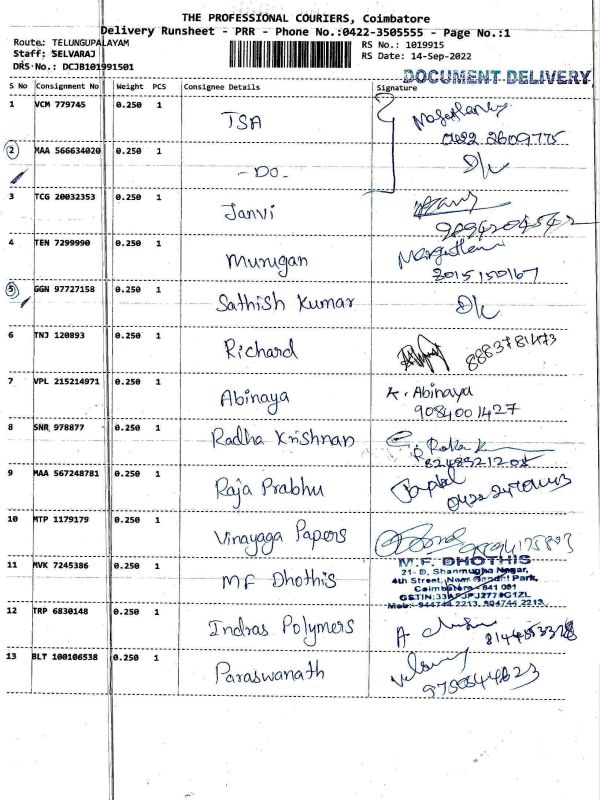 THE PROFESSIONAL COURIERS, Coimbatore
Delivery Runsheet - PRR - Phone No.:0422-3505555 - Page No.:1
Route: TELUNGUPALAYAM
Staff: SELVARAJ
DRS No.: DCJB101991501
RS No.: 1019915
RS Date: 14-Sep-2022
DOCUMENT DELIVERY
S No Consignment No Weight PCS Consignee Details Signature
1 VCM 779745 0.250 1 TSA
0422 2609775
2 MAA 566634020 0.250 1 - DO -
3 TCG 20032353 0.250 1 Janvi
4 TEN 7299990 0.250 1 Murugan
3015150167
5 GGN 97727158 0.250 1 Sathish Kumar
6 TNJ 120893 0.250 1 Richard 8883781473
7 VPL 215214971 0.250 1 Abinaya K. Abinaya
9084001427
8 SNR 978877 0.250 1 Radha Krishnan
9 MAA 567248781 0.250 1 Raja Prabhu
10 MTP 1179179 0.250 1 Vinayaga Papers
11 MVK 7245386 0.250 1 MF Dhothis
M.F. DHOTHIS
21- D, Shanmugha Nagar,
4th Street, Near Gandhi Park,
Coimbatore - 641 001
12 TRP 6830148 0.250 1 Indras Polymers
13 BLT 100106538 0.250 1 Paraswanath